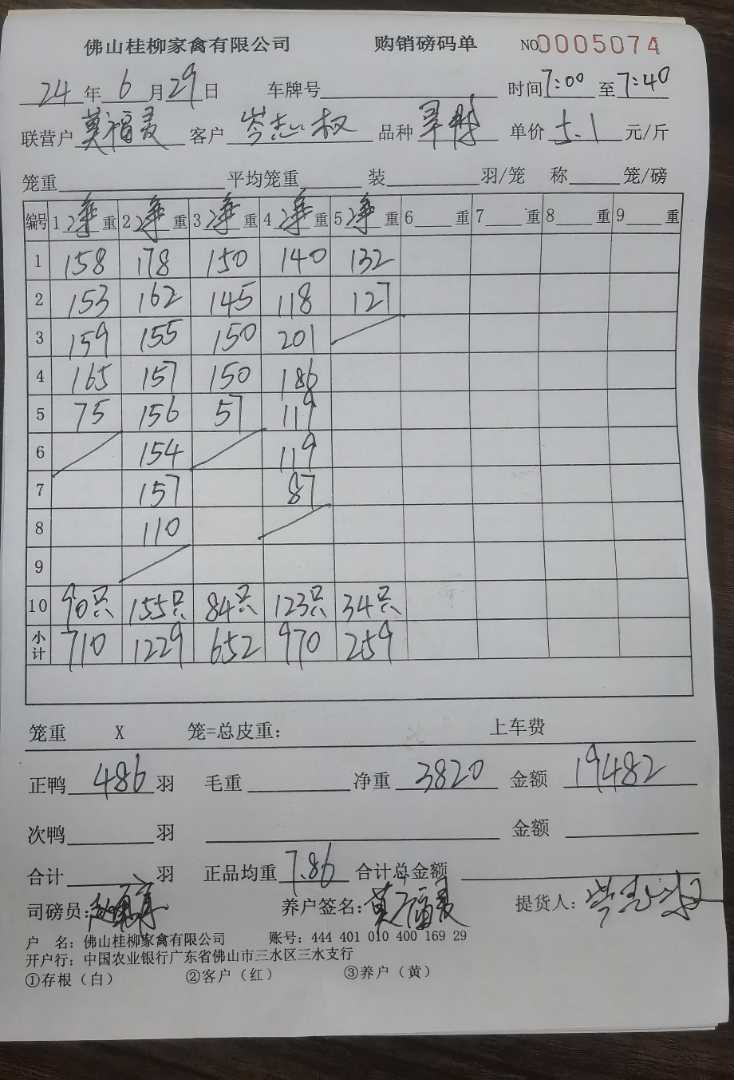 佛山桂柳家禽有限公司 购销磅码单 NO0005074
24年6月29日 车牌号 时间7:00至7:40
联营户莫福芨 客户岑志权 品种 单价5.1元/斤
笼重 平均笼重 装 羽/笼 称 笼/磅
编号 1净重 2净重 3净重 4净重 5净重 6 重 7 重 8 重 9 重
1 158 178 150 140 132
2 153 162 145 118 127
3 159 155 150 201
4 165 157 150 186
5 75 156 57 119
6 154 119
7 157 87
8 110
9
10 90只 155只 84只 123只 34只
小计 710 1229 652 970 259
笼重 X 笼=总皮重: 上车费
正鸭486羽 毛重 净重3820 金额19482
次鸭 羽 金额
合计 羽 正品均重7.86 合计总金额
司磅员: 养户签名:莫福芨 提货人:岑志权
户 名: 佛山桂柳家禽有限公司 账号: 444 401 010 400 169 29
开户行: 中国农业银行广东省佛山市三水区三水支行
①存根(白) ②客户(红) ③养户(黄)